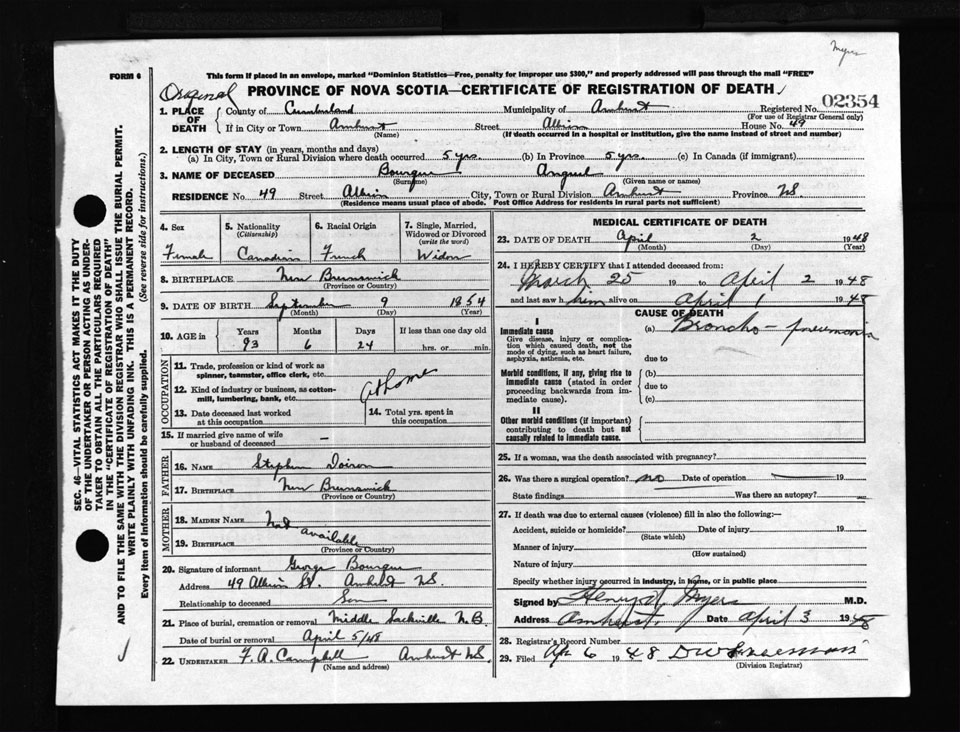 Myers
FORM 6
This form if placed in an envelope, marked "Dominion Statistics—Free, penalty for improper use $300," and properly addressed will pass through the mail "FREE"
Original
PROVINCE OF NOVA SCOTIA—CERTIFICATE OF REGISTRATION OF DEATH
02354
1. PLACE OF DEATH { County of Cumberland Municipality of Amherst Registered No.
(For use of Registrar General only)
If in City or Town Amherst Street Albion House No. 49
(Name) (If death occurred in a hospital or institution, give the name instead of street and number)
2. LENGTH OF STAY (in years, months and days)
(a) In City, Town or Rural Division where death occurred 5 yrs. (b) In Province 5 yrs. (c) In Canada (if immigrant)
3. NAME OF DECEASED Bourque
(Surname) (Given name or names)
RESIDENCE No. 49 Street Albion City, Town or Rural Division Amherst Province N.S.
(Residence means usual place of abode. Post Office Address for residents in rural parts not sufficient)
4. Sex
Female
5. Nationality
(Citizenship)
Canadian
6. Racial Origin
French
7. Single, Married, Widowed or Divorced
(write the word)
Widow
8. BIRTHPLACE New Brunswick
(Province or Country)
9. DATE OF BIRTH September 9 1854
(Month) (Day) (Year)
10. AGE in Years Months Days If less than one day old
93 6 24 hrs. or min.
OCCUPATION
11. Trade, profession or kind of work as spinner, teamster, office clerk, etc.
12. Kind of industry or business, as cotton-mill, lumbering, bank, etc.
at home
13. Date deceased last worked at this occupation
14. Total yrs. spent in this occupation
15. If married give name of wife or husband of deceased –
FATHER
16. NAME Stephen Doiron
17. BIRTHPLACE New Brunswick
(Province or Country)
MOTHER
18. MAIDEN NAME Not
19. BIRTHPLACE available
(Province or Country)
20. Signature of informant George Bourque
Address 49 Albion St. Amherst N.S.
Relationship to deceased Son
21. Place of burial, cremation or removal Middle Sackville N.B.
Date of burial or removal April 5/48
22. UNDERTAKER F. A. Campbell Amherst N.S.
(Name and address)
MEDICAL CERTIFICATE OF DEATH
23. DATE OF DEATH April 2 1948
(Month) (Day) (Year)
24. I HEREBY CERTIFY that I attended deceased from:
March 25 19 to April 2 1948
and last saw him alive on April 1 1948
CAUSE OF DEATH
I
Immediate cause (a) Broncho-pneumonia
Give disease, injury or complication which caused death, not the mode of dying, such as heart failure, asphyxia, asthenia, etc.
due to
Morbid conditions, if any, giving rise to immediate cause (stated in order proceeding backwards from immediate cause).
(b)
due to
(c)
II
Other morbid conditions (if important) contributing to death but not causally related to immediate cause.
25. If a woman, was the death associated with pregnancy?
26. Was there a surgical operation? no Date of operation — 19
State findings Was there an autopsy?
27. If death was due to external causes (violence) fill in also the following:—
Accident, suicide or homicide? Date of injury 19
(State which)
Manner of injury
(How sustained)
Nature of injury
Specify whether injury occurred in industry, in home, or in public place
Signed by Myers M.D.
Address Amherst Date April 3 1948
28. Registrar's Record Number
29. Filed Ap 6 1948
(Division Registrar)
SEC. 46—VITAL STATISTICS ACT MAKES IT THE DUTY
OF THE UNDERTAKER OR PERSON ACTING AS UNDER-
TAKER TO OBTAIN ALL THE PARTICULARS REQUIRED
IN THE "CERTIFICATE OF REGISTRATION OF DEATH"
AND TO FILE THE SAME WITH THE DIVISION REGISTRAR WHO SHALL ISSUE THE BURIAL PERMIT.
WRITE PLAINLY WITH UNFADING INK. THIS IS A PERMANENT RECORD.
Every item of information should be carefully supplied. (See reverse side for instructions.)